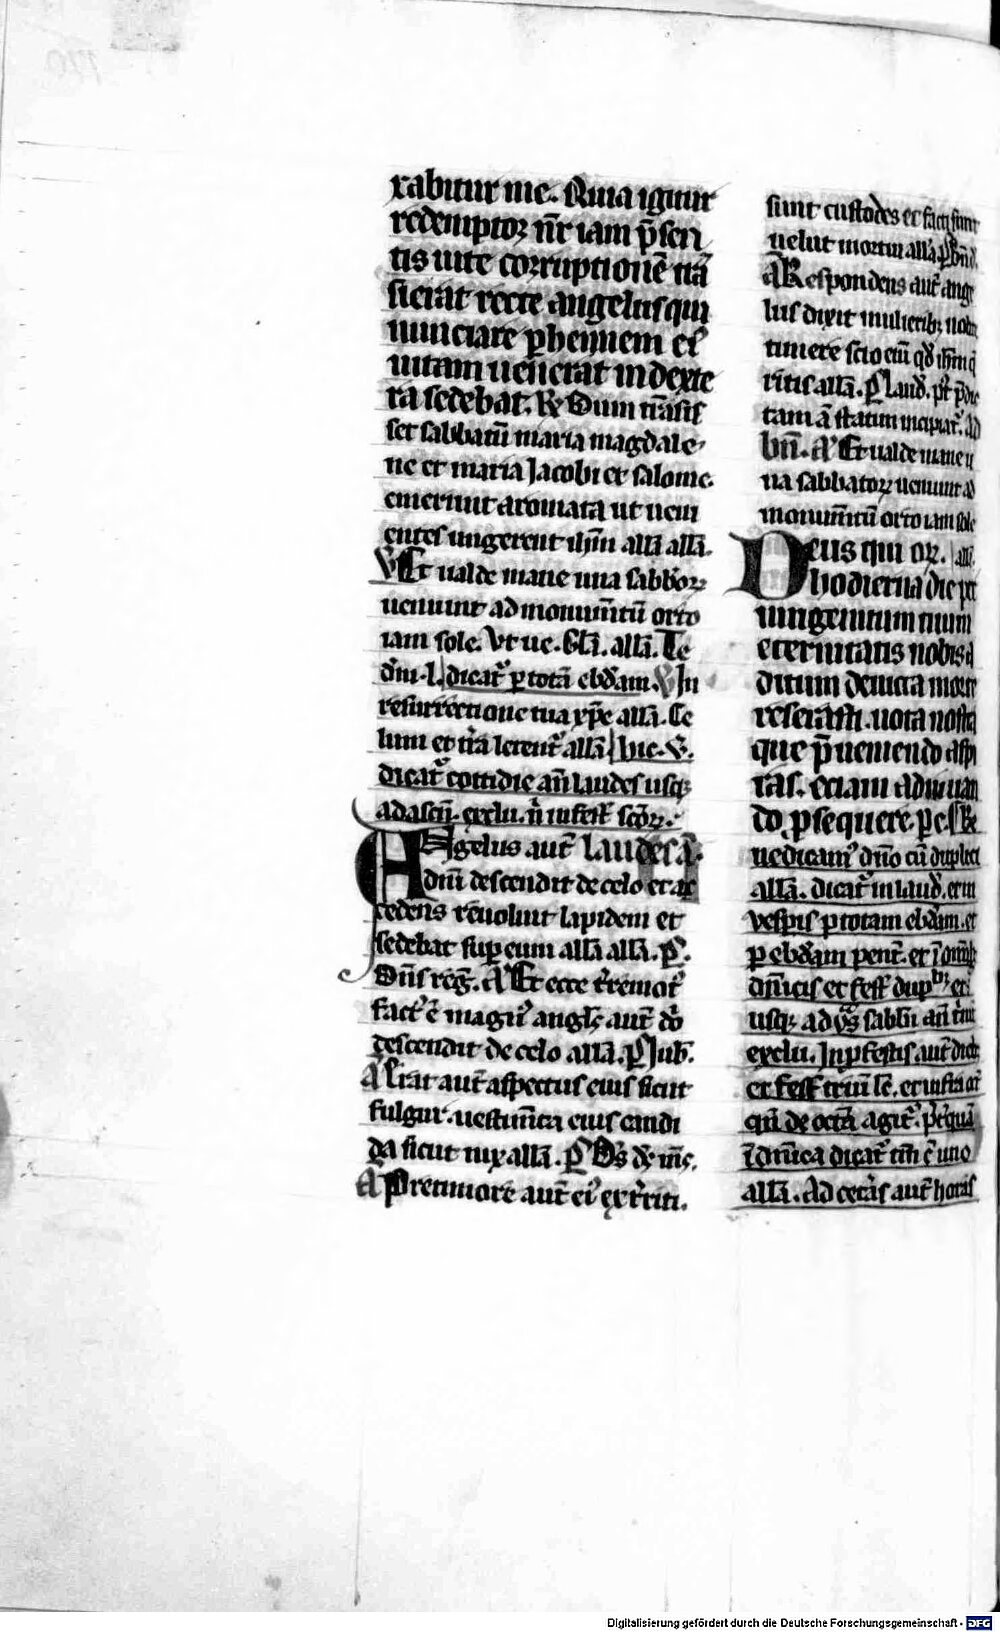 rabitur me. Quia igitur
redemptoꝛ nr̄ iam p̄sen
tis uite coꝛruptionē trā
sierat recte angelus qui
nunciare ꝑhennem eiꝰ
uitam uenerat in dexte
ra sedebat. ℟ Dum trāsis
set sabbatū maria magdale
ne et maria Jacobi et salome
emerunt aromata ut ueni
entes ungerent ihm̄ allā allā.
℣ Et ualde mane una sabboꝝ
ueniunt ad monumtū orto
iam sole. Vt ue. Glā. allā. Te
dm̄. l. dicatˀ ꝑ totā ebdam̄. ℣ In
resurrectione tua xpe allā. Ce
lum et trā letentˀ allā hic. ℣.
dicatˀ cottidie an̄ laudes usqꝫ
ad ascn̄. exclu. n̄ in fest̄ scōꝝ.
Angelus aut̄ laudes an̄
dn̄i descendit de celo et ac
cedens reuoluit lapidem et
sedebat suꝑ eum allā allā. p̄.
Dn̄s reḡ. A Et ecce t̄remotˀ
factˀ ē magnˀ anglꝰ aut̄ dn̄i
descendit de celo allā. p̄ Jub̄.
A Erat aut̄ aspectus eius sicut
fulgur. uestim̄ta eius candi
da sicut nix allā. p̄ Ds̄ ds̄ ms̄.
A Pre timore aut̄ eiˀ ext̄riti.
sunt custodes et facti sunt
uelut mortui allā. p̄ Bn̄d.
A Respondens aut̄ ange
lus dixit mulieribꝫ nolite
timere scio enī qd̄ ihm̄ q̄
ritis allā. p̄ Laud̄.
tam an̄ statim incipiatˀ. Ad
bn̄. A Et ualde mane u
na sabbatoꝝ ueniunt ad
monumtū orto iam sole
Deus qui oꝝ. allā.
hodierna die per
unigenitum tuum
eternitatis nobis a
ditum deuicta morte
reserasti. uota nostra
que p̄ueniendo aspi
ras. eciam adiuuan
do ꝓsequere. pe. Be
nedicamˀ dn̄o cū duplici
allā. dicatˀ in laud̄. et in
vesꝑis ꝑ totam ebdam̄. et
ꝑ ebdam̄ pent̄. et ī omībꝫ
dn̄icis et fest̄ dupꝫ et
usqꝫ ad sabb̄i an̄
exclu. In ꝓfestis aut̄ dieb
et fest̄ trium lc̄. et infra oct̄
qn̄ de octā agitˀ.
ī dn̄ica dicatˀ tm̄ cū uno
allā. Ad cet̄as aut̄ horas
Digitalisierung gefördert durch die Deutsche Forschungsgemeinschaft - DFG